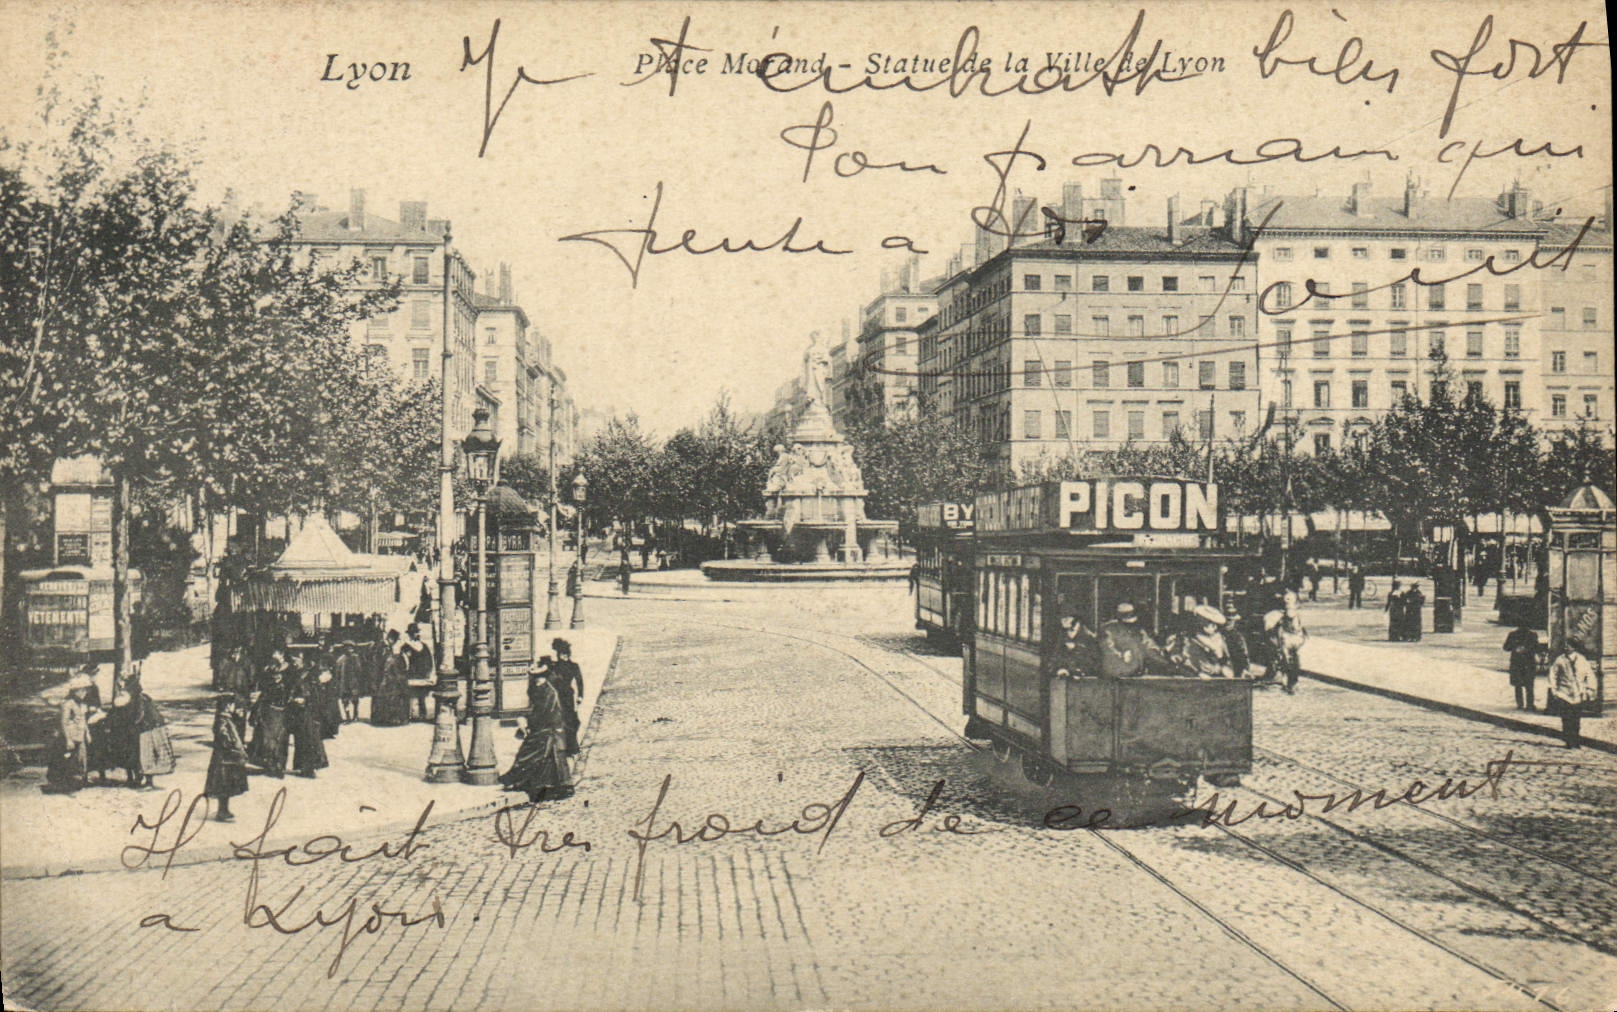 Lyon Place Morand - Statue de la Ville de Lyon
Je t'embrasse bien fort
Ton parrain qui
pense a toi
Il fait très froid de ce moment
a Lyon.
PICON
BY
BYRRH
VETEMENTS